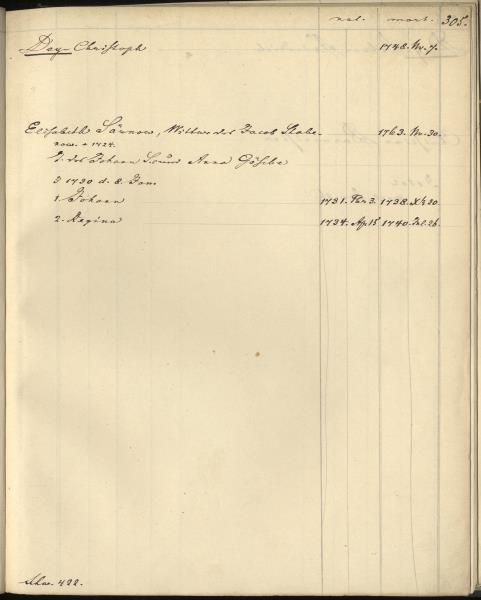 nat. mort. 305.
Day Christoph 1748. Nv. 7.
Elisabeth Sännow, Wittwe des Jacob Stabe 1763. Nv. 30.
+ 1724.
T. des Johann Anna Gösche
1730 d. 8. Jan.
1. Johann 1731. 3. 1738. Xb 20.
2. Regina 1734. Ap. 15 1740. Jul. 26.
422.